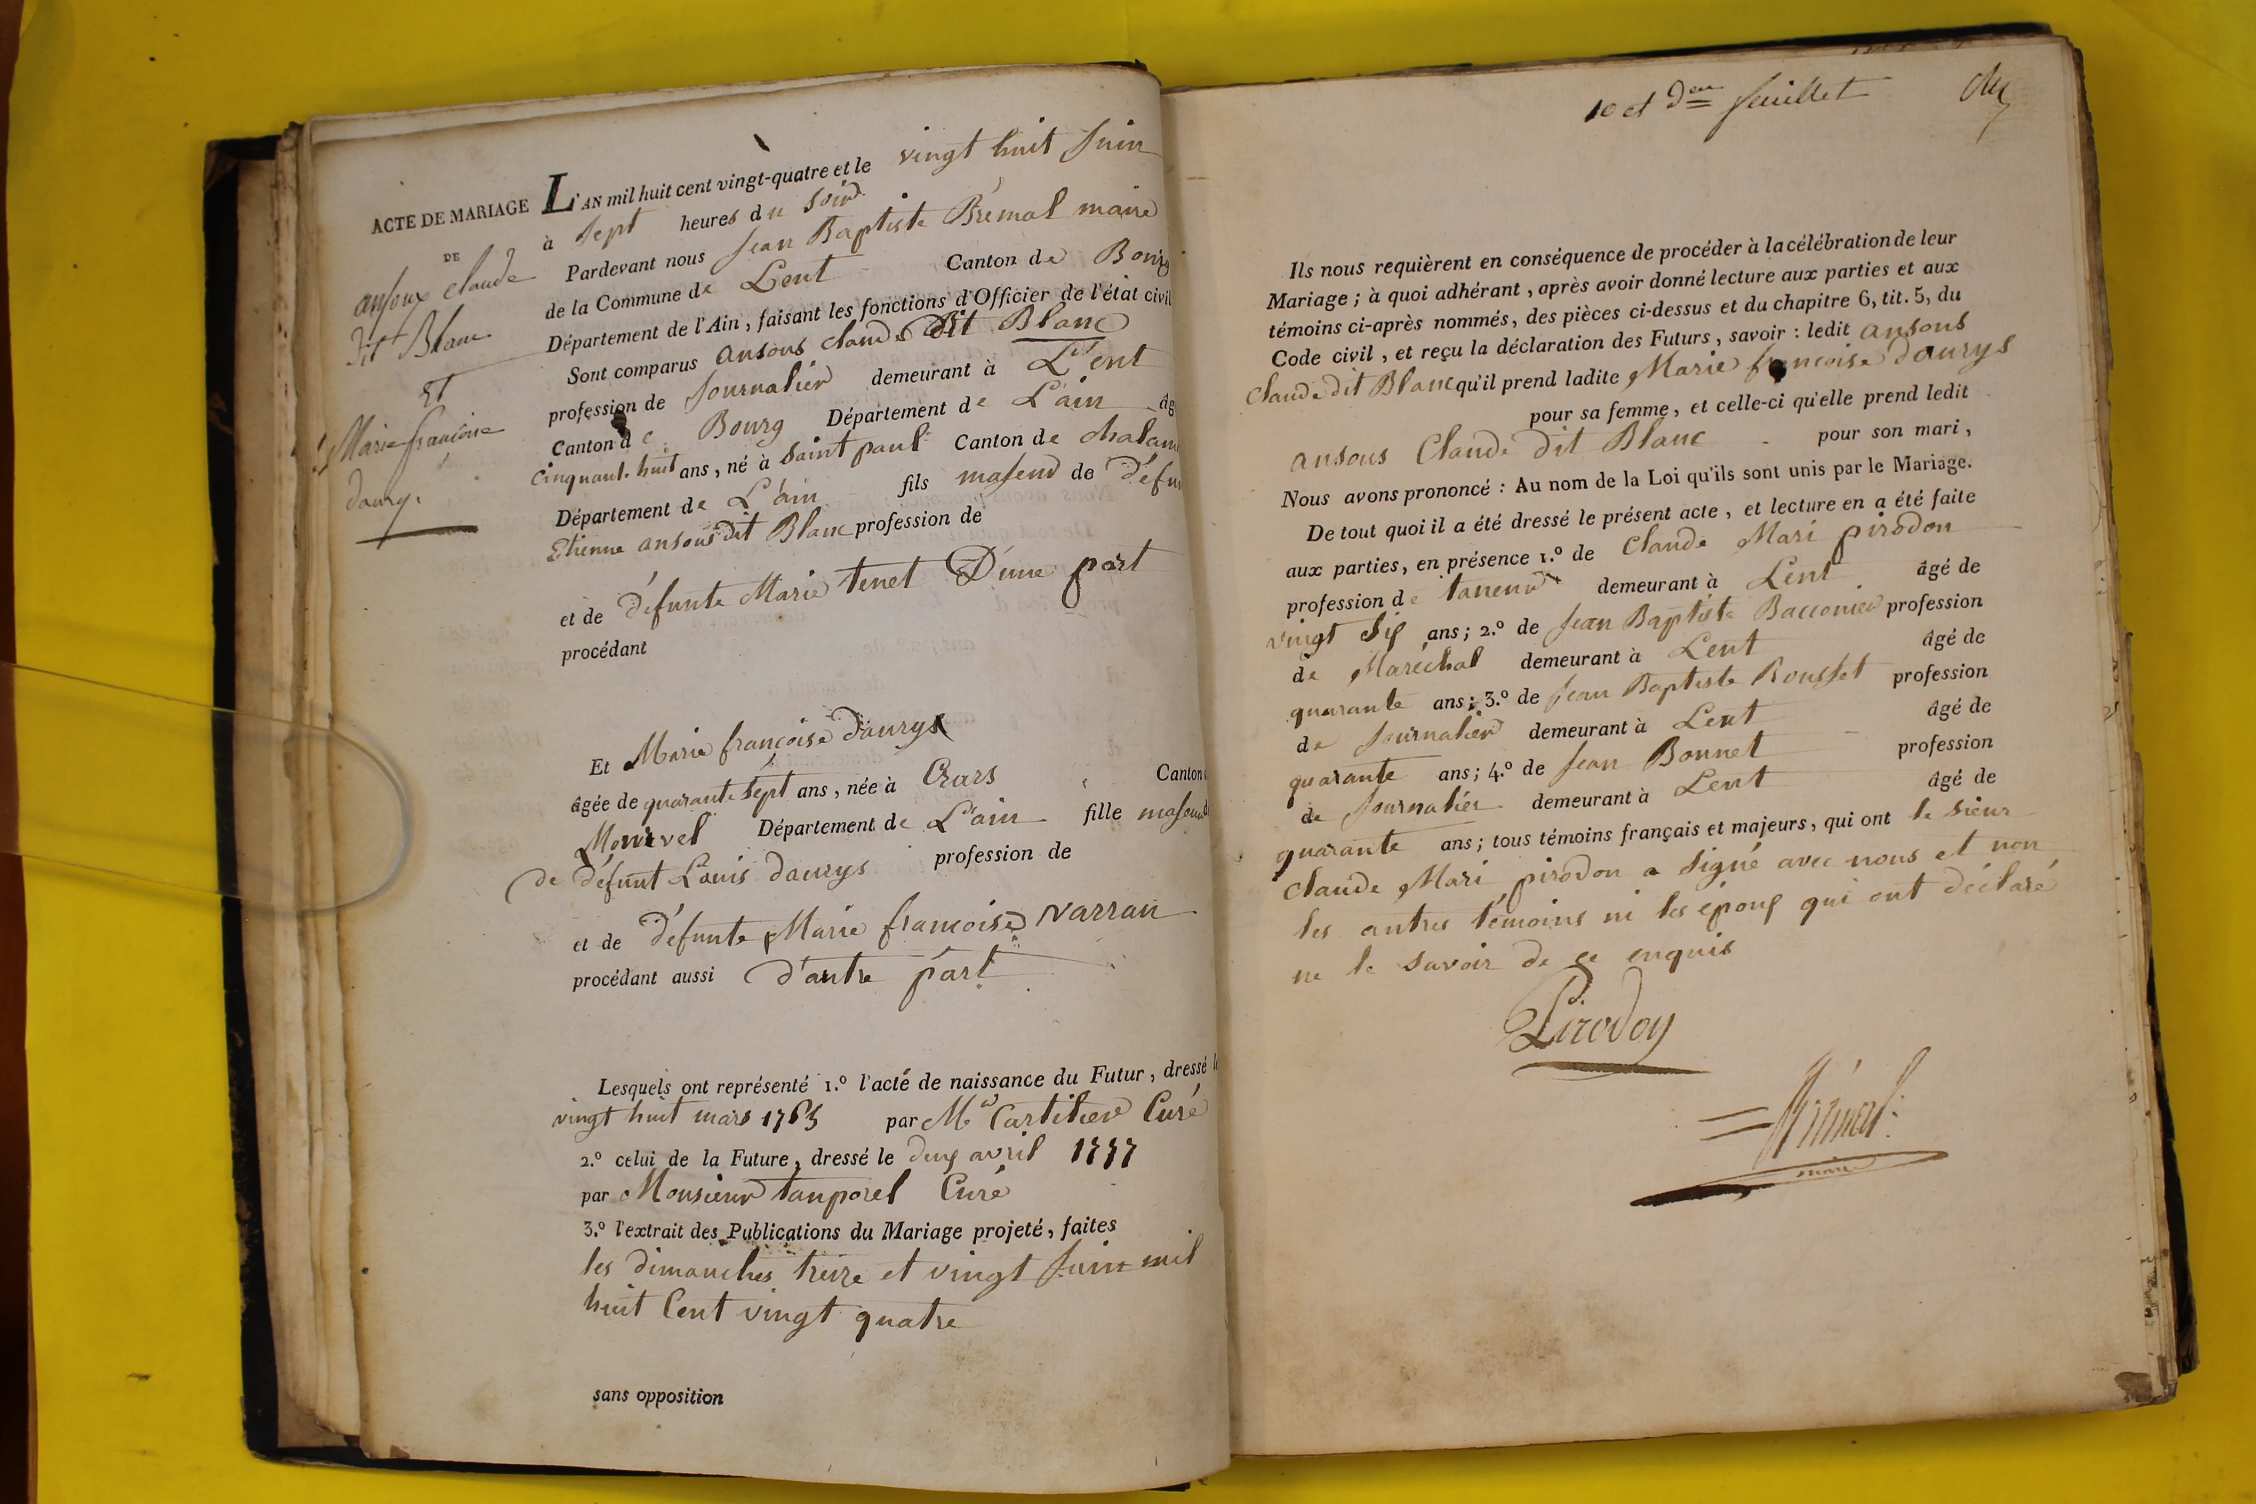 ACTE DE MARIAGE
DE
ansoux claude
dit Blanc
Et
Marie françoise
daurys
L'AN mil huit cent vingt-quatre et le vingt huit Juin
à Sept heures du Soir
Pardevant nous Jean Baptiste Brémal maire
de la Commune de Lent Canton de Bourg
Département de l'Ain, faisant les fonctions d'Officier de l'état civil
Sont comparus ansous claude dit Blanc
profession de Journalier demeurant à Lent
Canton de Bourg Département de L'ain âg
cinquante huit ans, né à Saint paul Canton de chalam
Département de L'ain fils majeur de défu
Etienne ansous dit Blanc profession de
et de défunte Marie tenet D'une part
procédant
Et Marie françoise daurys
âgée de quarante Sept ans, née à Cras Canton
Montrevel Département de L'ain fille majeure
de défunt Louis daurys profession de
et de défunte Marie françoise varran
procédant aussi d'autre part
Lesquels ont représenté 1.º l'acte de naissance du Futur, dressé le
vingt huit mars 1765 par Mr Cartilier Curé
2.º celui de la Future, dressé le deux avril 1777
par Monsieur tanporel Curé
3.º l'extrait des Publications du Mariage projeté, faites
les dimanches treize et vingt Juin mil
huit Cent vingt quatre
sans opposition
10 et der feuillet
Ils nous requièrent en conséquence de procéder à la célébration de leur
Mariage ; à quoi adhérant, après avoir donné lecture aux parties et aux
témoins ci-après nommés, des pièces ci-dessus et du chapitre 6, tit. 5, du
Code civil, et reçu la déclaration des Futurs, savoir : ledit ansous
claude dit Blanc qu'il prend ladite Marie françoise daurys
pour sa femme, et celle-ci qu'elle prend ledit
ansous Claude dit Blanc pour son mari,
Nous avons prononcé : Au nom de la Loi qu'ils sont unis par le Mariage.
De tout quoi il a été dressé le présent acte, et lecture en a été faite
aux parties, en présence 1.º de Claude Mari pirodon
profession de taneur demeurant à Lent âgé de
vingt Six ans ; 2.º de Jean Baptiste Bacconier profession
de Maréchal demeurant à Lent âgé de
quarante ans ; 3.º de Jean Baptiste Rousset profession
de Journalier demeurant à Lent âgé de
quarante ans ; 4.º de Jean Bonnet profession
de Journalier demeurant à Lent âgé de
quarante ans ; tous témoins français et majeurs, qui ont le Sieur
claude Mari pirodon a Signé avec nous et non
les autres témoins ni les époux qui ont déclaré
ne le Savoir de ce enquis
Pirodon
Brémal
maire